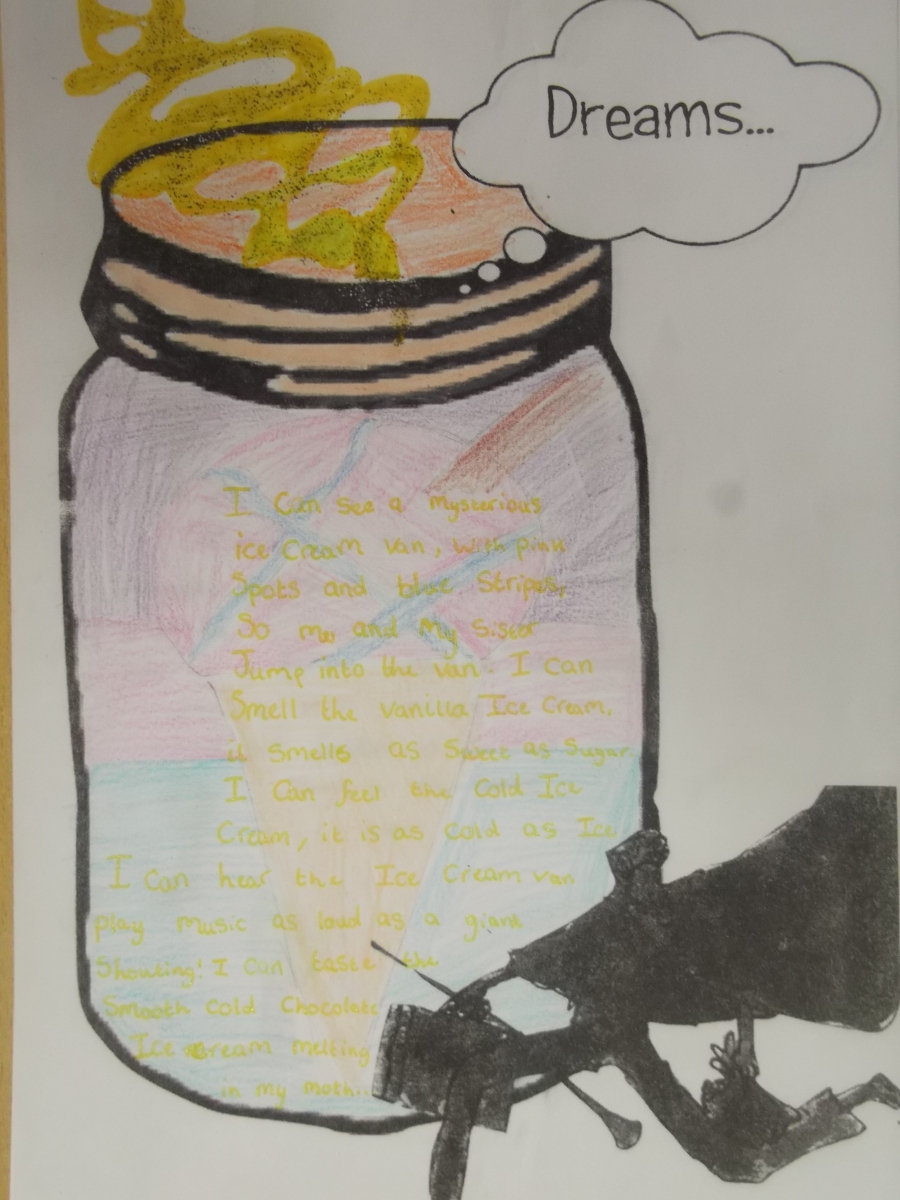 Dreams...
I Can see a mysterious
ice Cream van, with pink
Spots and blue Stripes,
So me, and My Sister
Jump into the van. I Can
Smell the vanilla Ice Cream,
it smells as Sweet as Sugar
I Can feel the Cold Ice
Cream, it is as Cold as Ice
I Can hear the Ice Cream van
play music as loud as a giant
Shouting! I Can taste the
Smooth Cold Chocolate
Ice Cream melting
in my moth...